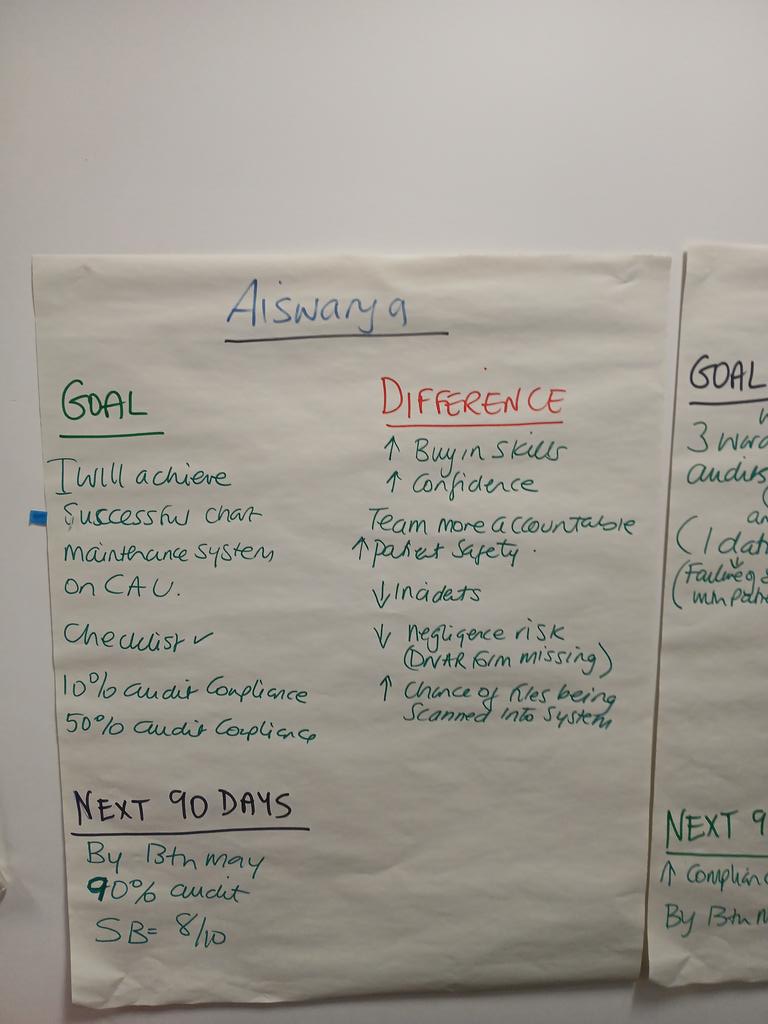 Aiswarya
GOAL
I will achieve
Successful chart
maintenance system
on CAU.
Checklist ✓
10% audit Compliance
50% audit Compliance
NEXT 90 DAYS
By 13th may
90% audit
SB= 8/10
DIFFERENCE
↑ Buy in skills
↑ Confidence
Team more accountable
↑ patient safety.
↓ Incidents
↓ negligence risk
(DNAR form missing)
↑ Chance of files being
scanned into system
GOAL
3 War
audits
(1 dat
(Failure
NEXT 9
↑ Complianc
By 13th m